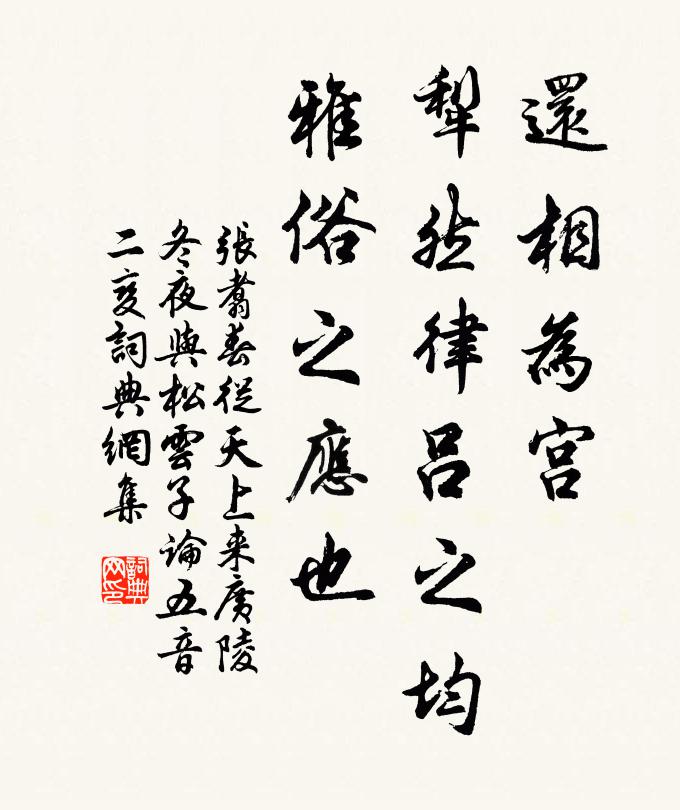 還相為宮
犁然律呂之均
雅俗之應也
張翥春從天上来廣陵
冬夜與松雲子論五音
二变詞典網集
詞典网印